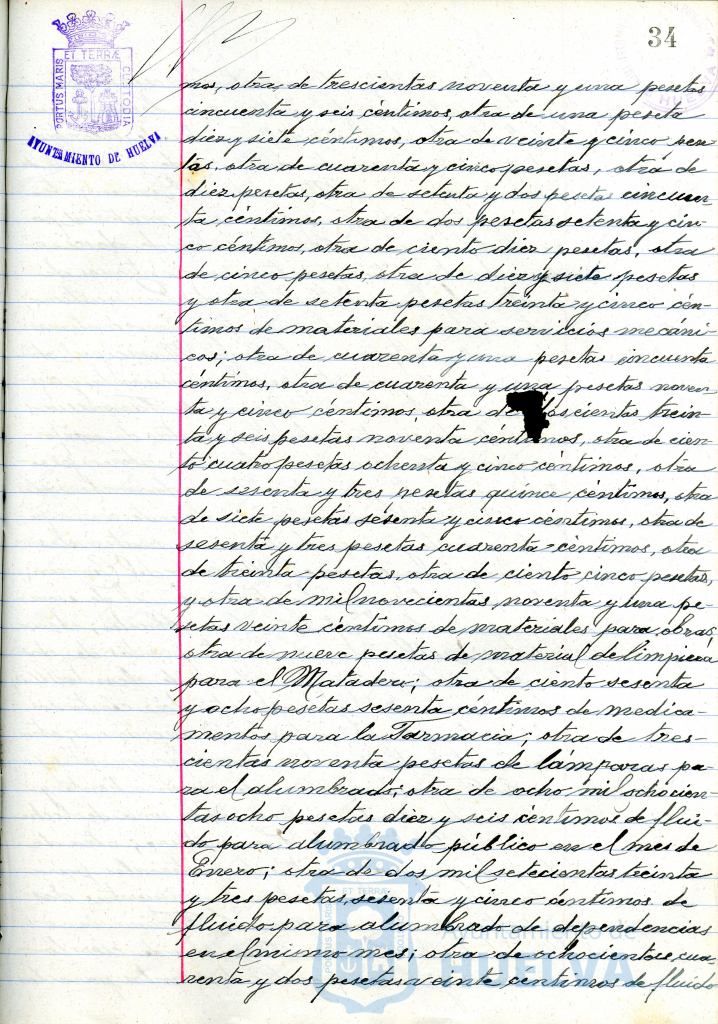 34
PORTUS MARIS ET TERRÆ CUSTODIA
AYUNTAMIENTO DE HUELVA
mos, otra de trescientas noventa y una pesetas
cincuenta y seis céntimos, otra de una peseta
diez y siete céntimos, otra de veinte y cinco pese-
tas, otra de cuarenta y cinco pesetas, otra de
diez pesetas, otra de setenta y dos pesetas cincuen-
ta céntimos, otra de dos pesetas setenta y cin-
co céntimos, otra de ciento diez pesetas, otra
de cinco pesetas, otra de diez y siete pesetas
y otra de setenta pesetas treinta y cinco cén-
timos de materiales para servicios mecáni-
cos; otra de cuarenta y una pesetas cincuenta
céntimos, otra de cuarenta y una pesetas noven-
ta y cinco céntimos, otra de doscientas trein-
ta y seis pesetas noventa céntimos, otra de cien-
to cuatro pesetas ochenta y cinco céntimos, otra
de sesenta y tres pesetas quince céntimos, otra
de siete pesetas sesenta y cinco céntimos, otra de
sesenta y tres pesetas cuarenta céntimos, otra
de treinta pesetas, otra de ciento cinco pesetas,
y otra de mil novecientas noventa y una pe-
setas veinte céntimos de materiales para obras;
otra de nueve pesetas de material de limpieza
para el Matadero; otra de ciento sesenta
y ocho pesetas sesenta céntimos de medica-
mentos para la Farmacia; otra de tres-
cientas noventa pesetas de lámparas pa-
ra el alumbrado; otra de ocho mil ochocien-
tas ocho pesetas diez y seis céntimos de flui-
do para alumbrado público en el mes de
Enero; otra de dos mil setecientas treinta
y tres pesetas, sesenta y cinco céntimos de
fluido para alumbrado de dependencias
en el mismo mes; otra de ochocientas cua-
renta y dos pesetas veinte céntimos de fluido
Ayuntamiento de
HUELVA